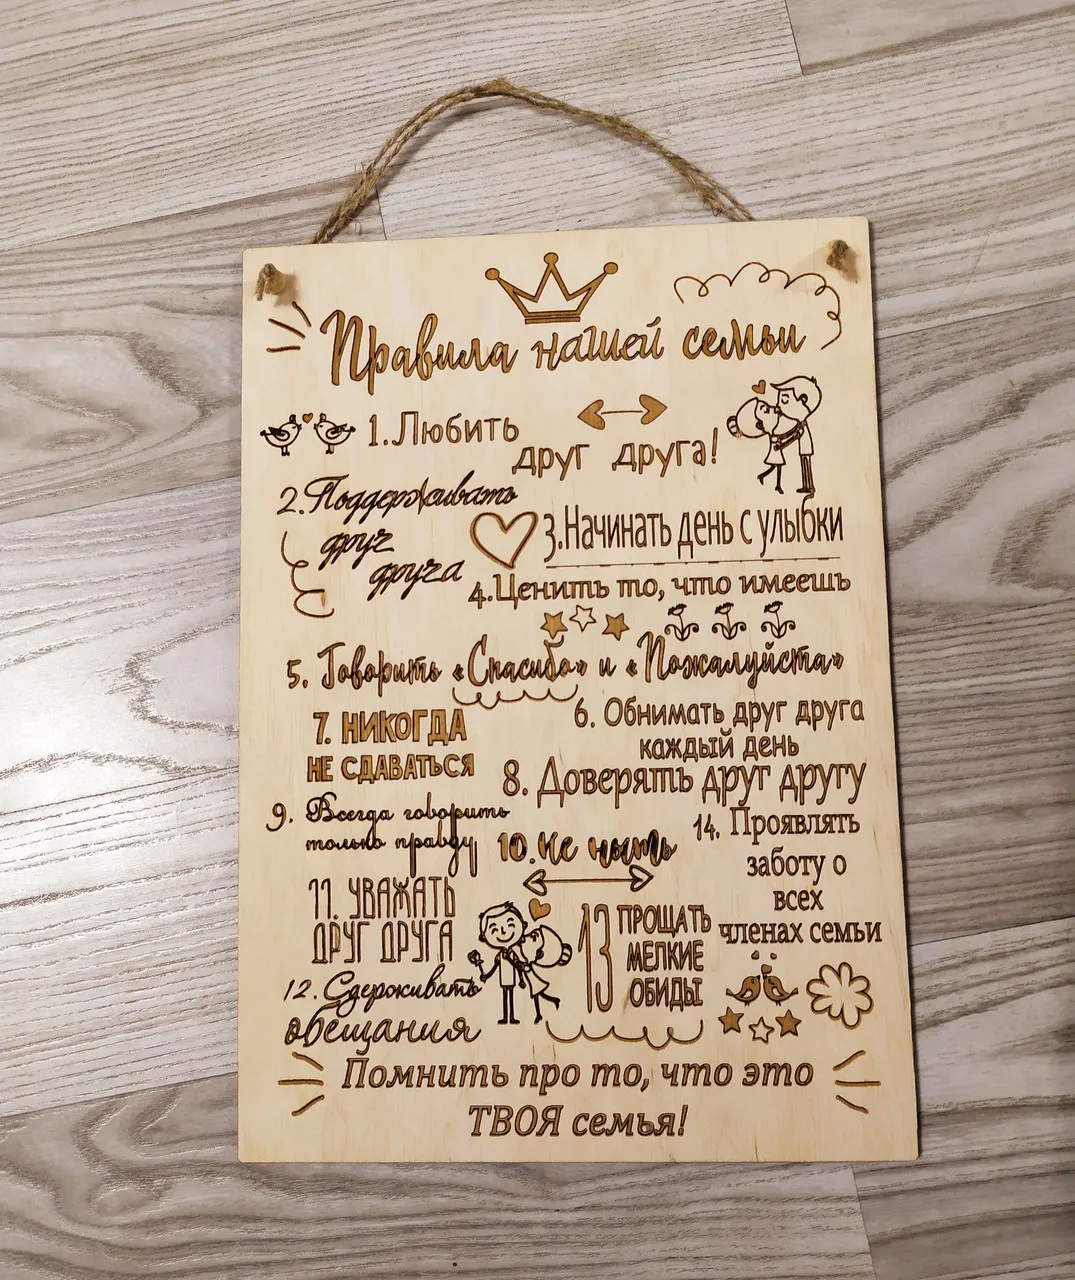 Правила нашей семьи
1.Любить
друг друга!
2.Поддерживать
друг
друга
3.Начинать день с улыбки
4.Ценить то, что имеешь
5. Говорить «Спасибо» и «Пожалуйста»
6. Обнимать друг друга
каждый день
7. НИКОГДА
НЕ СДАВАТЬСЯ
8. Доверять друг другу
9. Всегда говорить
только правду
10.Не ныть
11. УВАЖАТЬ
ДРУГ ДРУГА
12. Сдерживать
обещания
13 ПРОЩАТЬ
МЕЛКИЕ
ОБИДЫ
14. Проявлять
заботу о
всех
членах семьи
Помнить про то, что это
ТВОЯ семья!